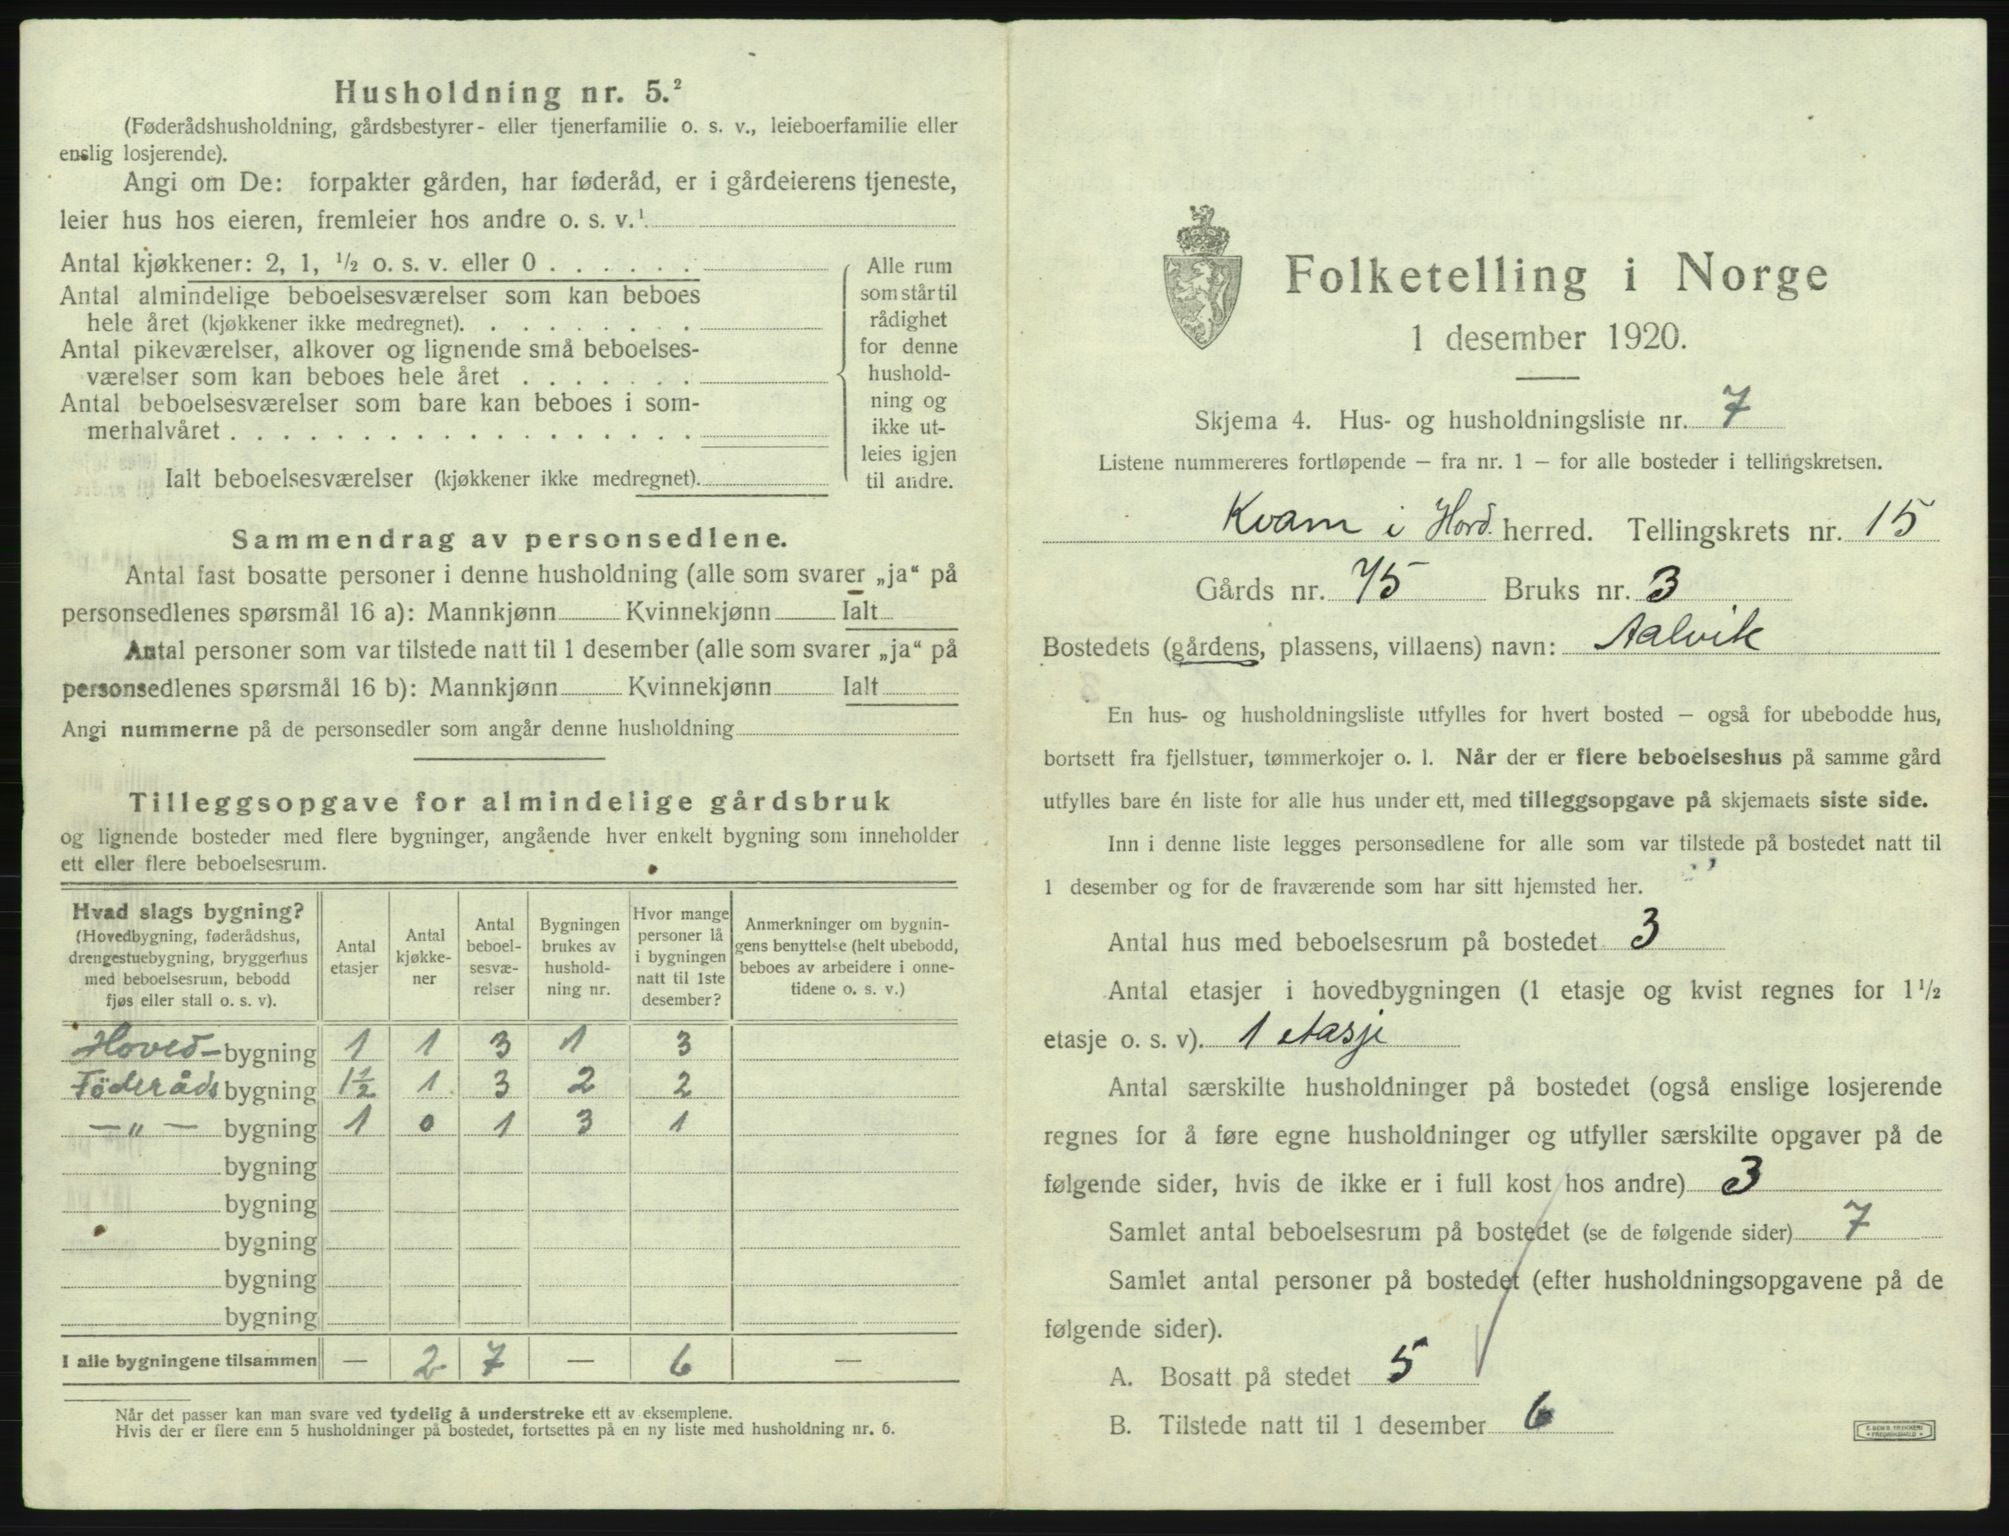 Husholdning nr. 5.²
(Føderådshusholdning, gårdsbestyrer- eller tjenerfamilie o. s. v., leieboerfamilie eller
enslig losjerende).
Angi om De: forpakter gården, har føderåd, er i gårdeierens tjeneste,
leier hus hos eieren, fremleier hos andre o. s. v.¹
Antal kjøkkener: 2, 1, ½ o. s. v. eller 0 . . . . . .
Antal almindelige beboelsesværelser som kan beboes
hele året (kjøkkener ikke medregnet). . . . . . . . .
Antal pikeværelser, alkover og lignende små beboelses-
værelser som kan beboes hele året . . . . . . .
Antal beboelsesværelser som bare kan beboes i som-
merhalvåret . . . . . . . . . . . . . . . . . .
Ialt beboelsesværelser (kjøkkener ikke medregnet).
Alle rum
som står til
rådighet
for denne
hushold-
ning og
ikke ut-
leies igjen
til andre.
Sammendrag av personsedlene.
Antal fast bosatte personer i denne husholdning (alle som svarer „ja“ på
personsedlenes spørsmål 16 a): Mannkjønn Kvinnekjønn Ialt
Antal personer som var tilstede natt til 1 desember (alle som svarer „ja“ på
personsedlenes spørsmål 16 b): Mannkjønn Kvinnekjønn Ialt
Angi nummerne på de personsedler som angår denne husholdning
Tilleggsopgave for almindelige gårdsbruk
og lignende bosteder med flere bygninger, angående hver enkelt bygning som inneholder
ett eller flere beboelsesrum.
Hvad slags bygning?
(Hovedbygning, føderådshus,
drengestuebygning, bryggerhus
med beboelsesrum, bebodd
fjøs eller stall o. s. v).
Antal
etasjer
Antal
kjøkke-
ner
Antal
beboel-
sesvæ-
relser
Bygningen
brukes av
hushold-
ning nr.
Hvor mange
personer lå
i bygningen
natt til 1ste
desember?
Anmerkninger om bygnin-
gens benyttelse (helt ubebodd,
beboes av arbeidere i onne-
tidene o. s. v.)
Hoved- bygning 1 1 3 1 3
Föderåds bygning 1½ 1 3 2 2
— " — bygning 1 0 1 3 1
bygning
bygning
bygning
bygning
bygning
I alle bygningene tilsammen — 2 7 — 6 —
Når det passer kan man svare ved tydelig å understreke ett av eksemplene.
Hvis der er flere enn 5 husholdninger på bostedet, fortsettes på en ny liste med husholdning nr. 6.
Folketelling i Norge
1 desember 1920.
Skjema 4. Hus- og husholdningsliste nr. 7
Listene nummereres fortløpende — fra nr. 1 — for alle bosteder i tellingskretsen.
Kvam i Hord. herred. Tellingskrets nr. 15
Gårds nr. 75 Bruks nr. 3
Bostedets (gårdens, plassens, villaens) navn: Aalvik
En hus- og husholdningsliste utfylles for hvert bosted — også for ubebodde hus,
bortsett fra fjellstuer, tømmerkojer o. l. Når der er flere beboelseshus på samme gård
utfylles bare én liste for alle hus under ett, med tilleggsopgave på skjemaets siste side.
Inn i denne liste legges personsedlene for alle som var tilstede på bostedet natt til
1 desember og for de fraværende som har sitt hjemsted her.
Antal hus med beboelsesrum på bostedet 3
Antal etasjer i hovedbygningen (1 etasje og kvist regnes for 1½
etasje o. s. v). 1 etasje
Antal særskilte husholdninger på bostedet (også enslige losjerende
regnes for å føre egne husholdninger og utfyller særskilte opgaver på de
følgende sider, hvis de ikke er i full kost hos andre) 3
Samlet antal beboelsesrum på bostedet (se de følgende sider) 7
Samlet antal personer på bostedet (efter husholdningsopgavene på de
følgende sider).
A. Bosatt på stedet 5
B. Tilstede natt til 1 desember 6